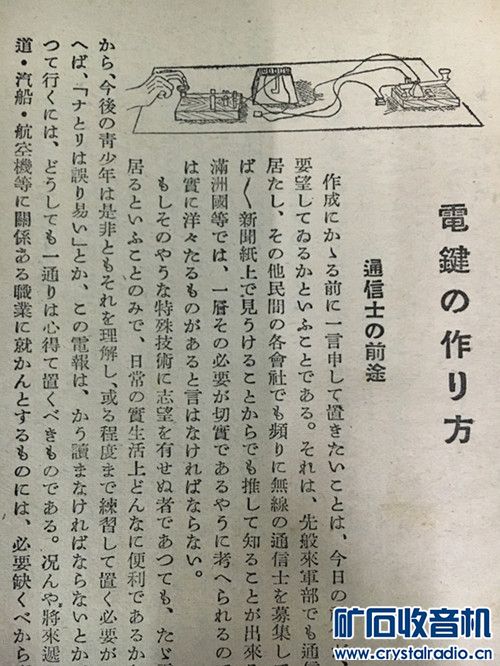 電鍵の作り方
通信士の前途
作成にかゝる前に一言申して置きたいことは、今日の
要望してゐるかといふことである。それは、先般來軍部でも通信
居たし、その他民間の各會社でも頻りに無線の通信士を募集して
ば〱新聞紙上で見うけることからでも推して知ることが出來
滿洲國等では、一層その必要が切實であるやうに考へられるの
は實に洋々たるものがあると言はなければならない。
もしそのやうな特殊技術に志望を有せぬ者であつても、たゞ
居るといふことのみで、日常の實生活上どんなに便利であるか
から、今後の靑少年は是非ともそれを理解し、或る程度まで練習して置く必要が
へば、「ナとリは誤り易い」とか、この電報は、かう讀まなければならないとか
つて行くには、どうしても一通りは心得て置くべきものである。況んや將來遞
道・汽船・航空機等に關係ある職業に就かんとするものには、必要缺くべから
矿石收音机
www.crystalradio.cn